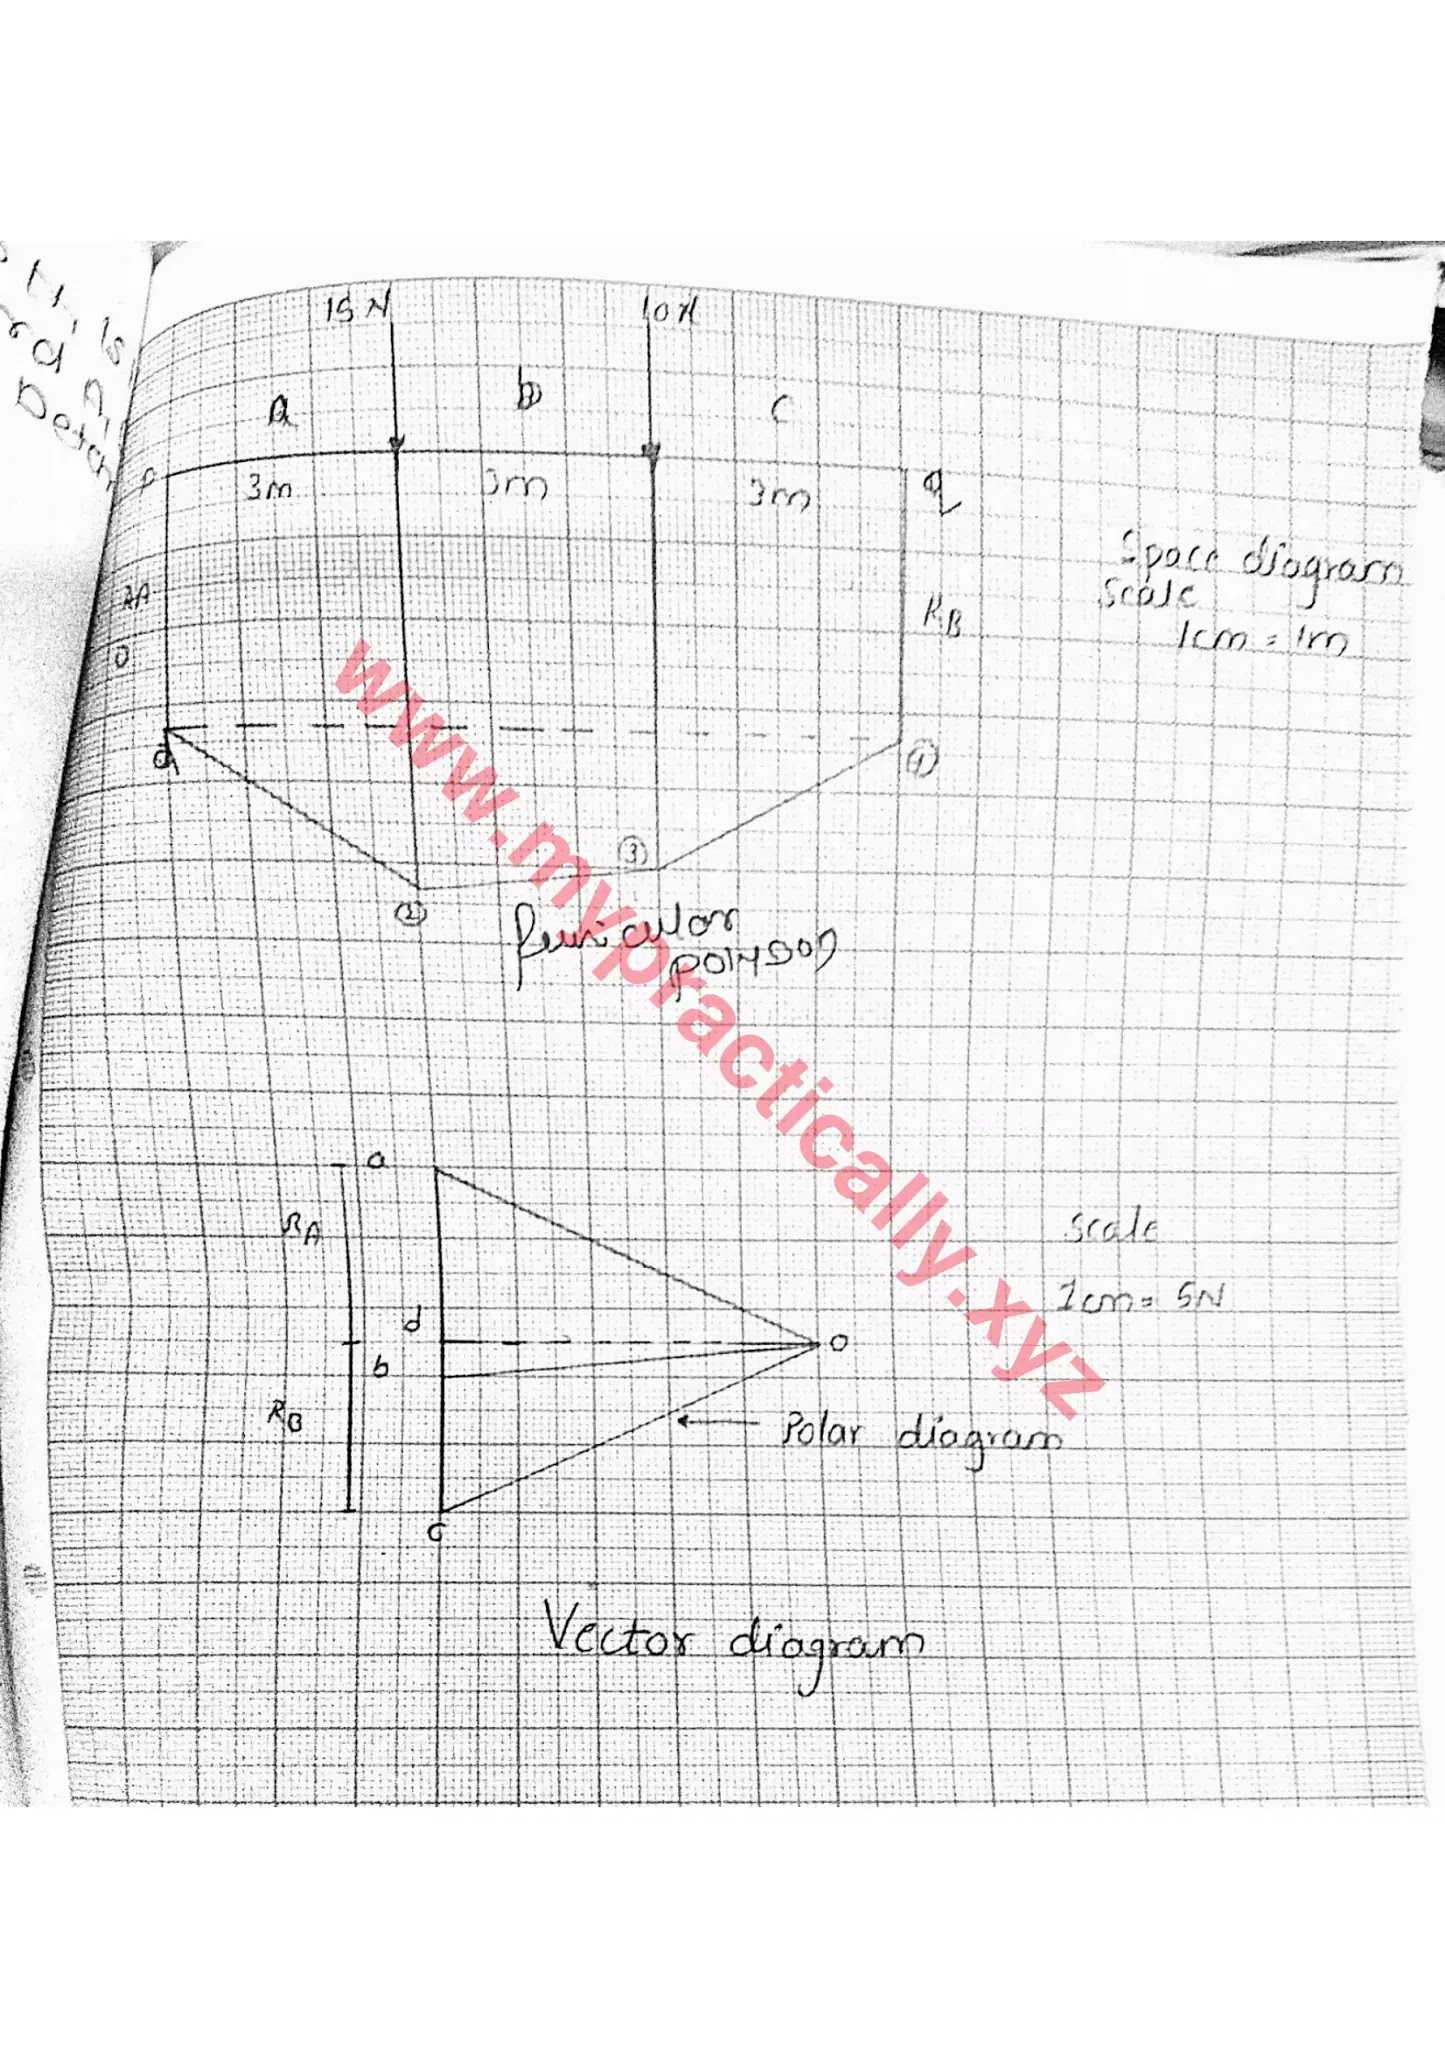 15 N 10 N
A B C
P 3m 3m 3m q
Space diagram
Scale
1cm = 1m
RA
RB
D
④
③
②
funicular
polygon
www.mypractically.xyz
a
RA
Scale
1cm = 5N
d
o
b
RB
Polar diagram
c
Vector diagram